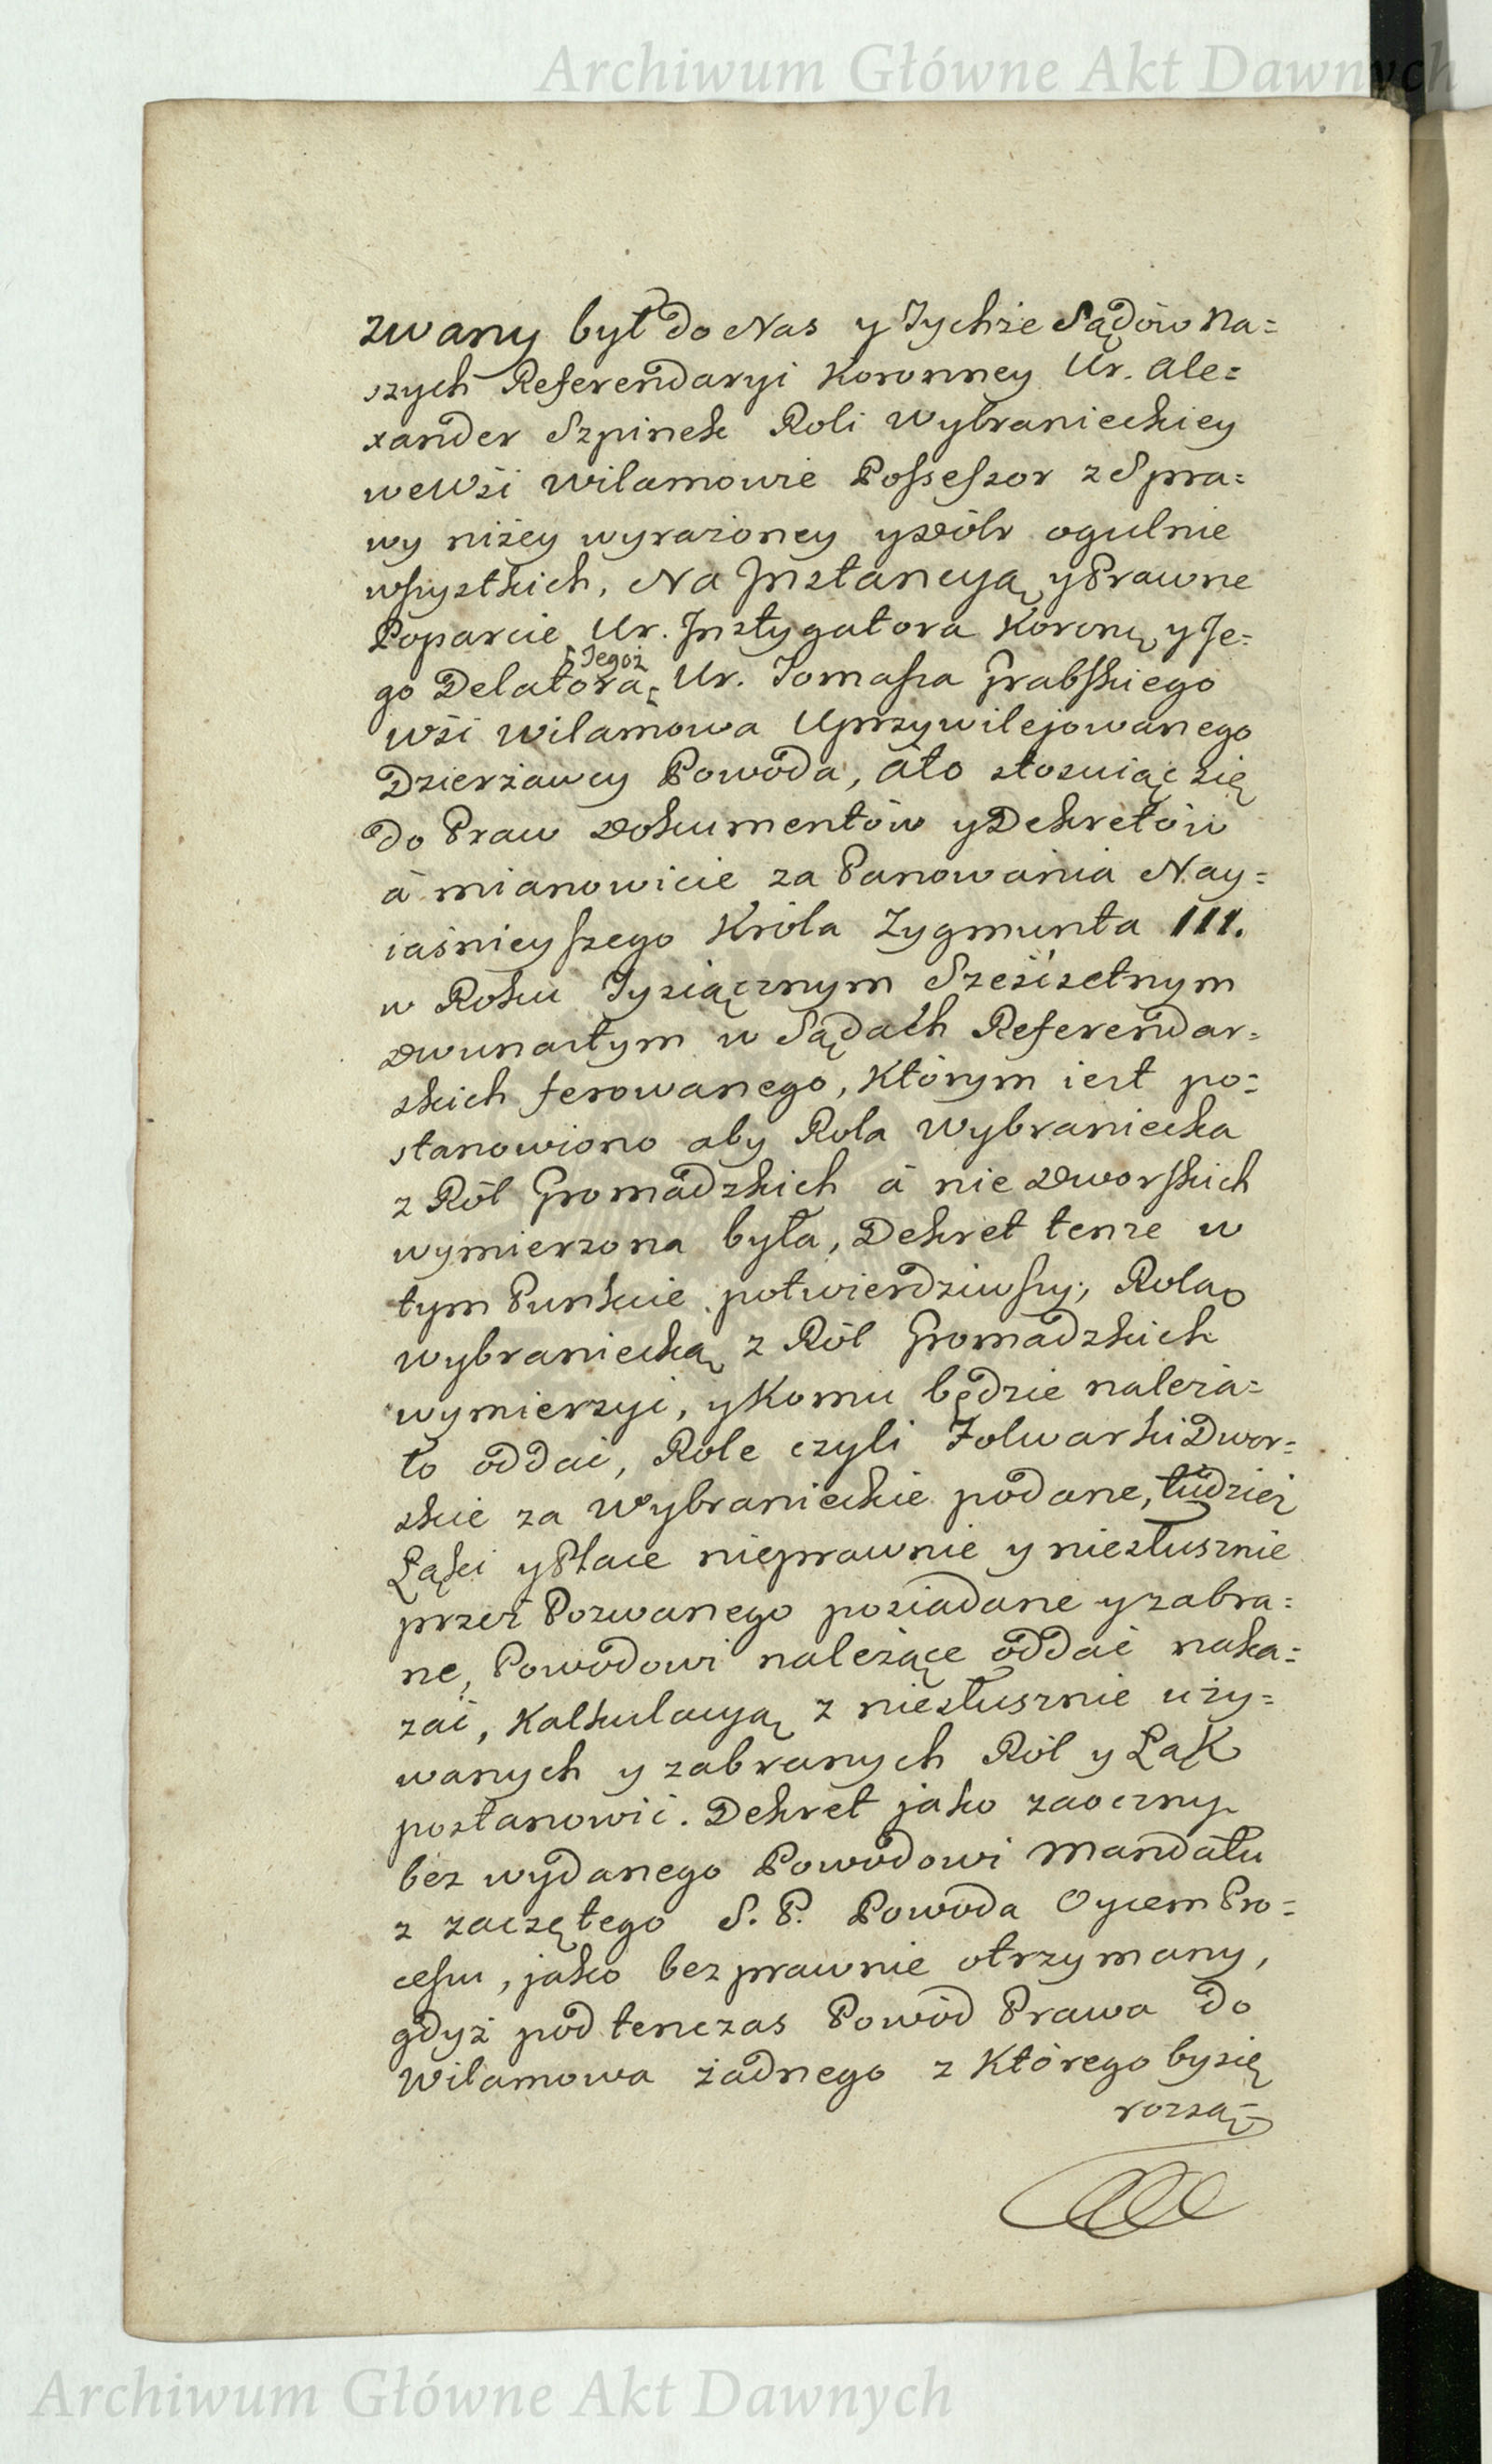 Archiwum Główne Akt Dawnych
zwany był do Nas y Tychże Sądów Na=
szych Referendaryi Koronney Ur. Ale=
xander Szpinek Roli Wybranieckiey
we Wsi Wilamowie Possessor z Spra=
wy niżey wyrażoney y Dóbr ogulnie
wszystkich, Na Jnstancyą y Prawne
Poparcie Ur. Jnstygatora Koronn. y Je=
Tegoż
go Delatora, Ur. Tomasza Grabskiego
Wsi Wilamowa Uprzywilejowanego
Dzierżawcy Powoda, áto stosuiąc się
do Praw Dokumentów y Dekretów
á mianowicie za Panowania Nay=
iaśnieyszego Króla Zygmunta III.
w Roku Tysiącznym Sześćsetnym
Dwunastym w Sądach Referendar=
skich ferowanego, którym iest po=
stanowiono aby Rola Wybraniecka
z Ról Gromadzkich á nie Dworskich
wymierzona była, Dekret tenże w
tym Punkcie potwierdziwszy, Rolą
wybraniecką z Ról Gromadzkich
wymierzyć, y Komu będzie należa=
ło oddać, Role czyli Folwarki Dwor=
skie za Wybranieckie podane, tudzież
Łąki y Place nieprawnie y niesłusznie
przez Pozwanego posiadane y zabra=
ne, Powodowi należące oddać naka=
zać, Kalkulacyą z niesłusznie uży=
wanych y zabranych Ról y Łąk
postanowić. Dekret jako zaoczny
bez wydanego Powodowi Mandatu
z zaczętego S. P. Powoda Oycem Pro=
cesu, jako bezprawnie otrzymany,
gdyż pod tenczas Powód Prawa do
Wilamowa żadnego z Którego by się
rozsą=
Archiwum Główne Akt Dawnych